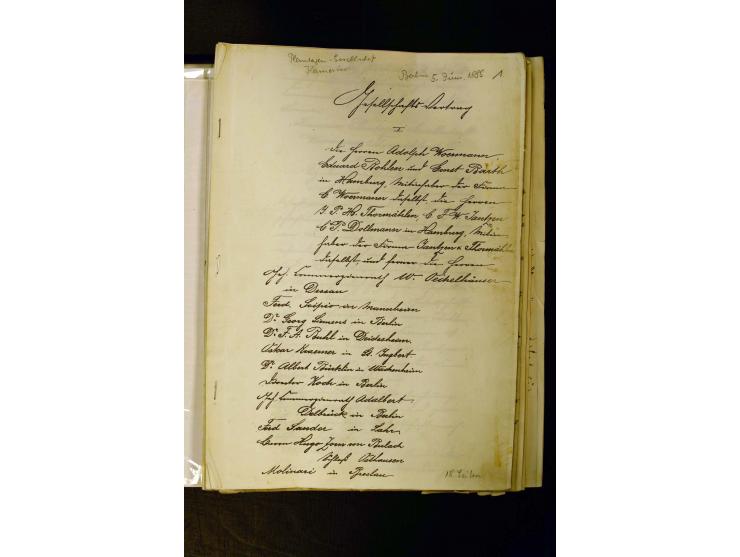 Plantagen-Gesellschaft
Kamerun
Berlin 5. Juni 1886 1
Gesellschafts Vertrag
I
Die Herren Adolph Woermann
Eduard Bohlen und Ernst Barth
in Hamburg, Mitinhaber der Firma
C Woermann daselbst, die Herren
J. P. H. Thormählen, C. F. W. Jantzen
C P. Dollmann in Hamburg, Mitin
haber der Firma Jantzen & Thormählen
daselbst, und ferner die Herren
Geh Commerzienrath W. Oechelhäuser
in Dessau
Ferd. Scipio in Mannheim
Dr Georg Siemens in Berlin
Dr. F. A. Buhl in Deidesheim.
Oskar Kraemer in St. Ingbert
Dr. Albert Bürklin in Wachenheim
Director Koch in Berlin
Geh Commerzienrath Adalbert
Delbrück in Berlin
Ferd Sander in Lahr,
Baron Hugo Zorn von Bulach
Schloß Osthausen
Molinari in Breslau
18 Seiten